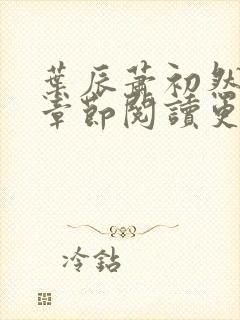 葉辰蕭初然
章節閱讀更
冷鉆